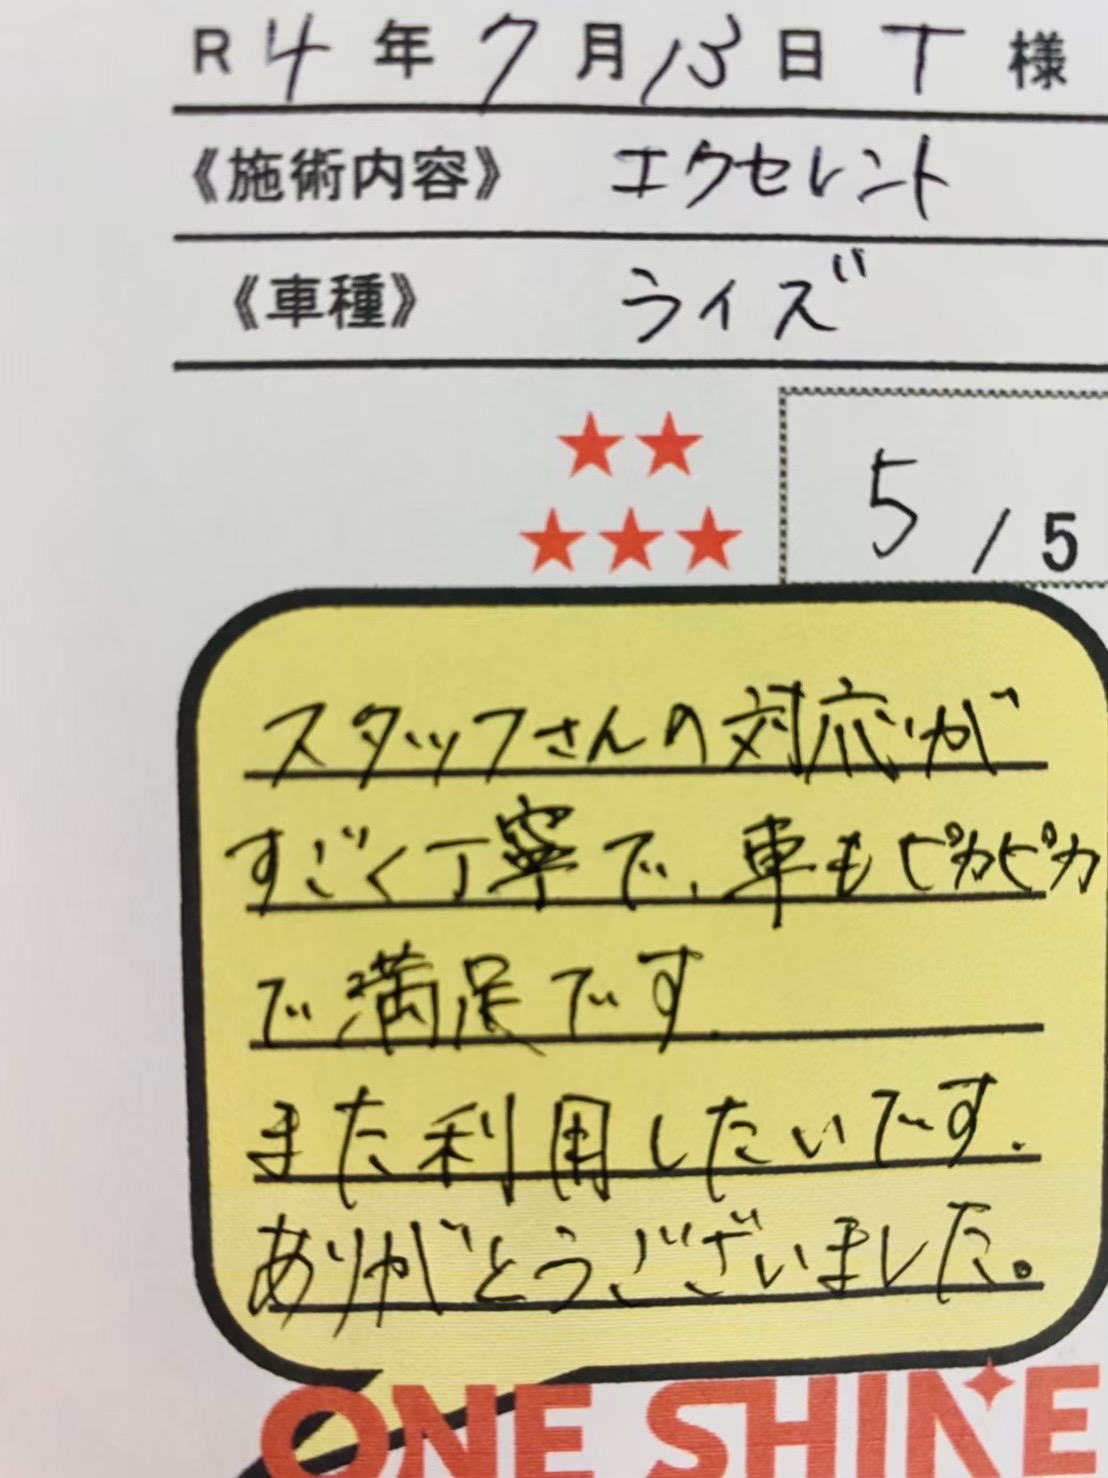 R4年7月13日 T 様
《施術内容》 エクセレント
《車種》 ライズ
5/5
スタッフさんの対応が
すごく丁寧で、車もピカピカ
で満足です.
また利用したいです.
ありがとうございました。
ONE SHINE